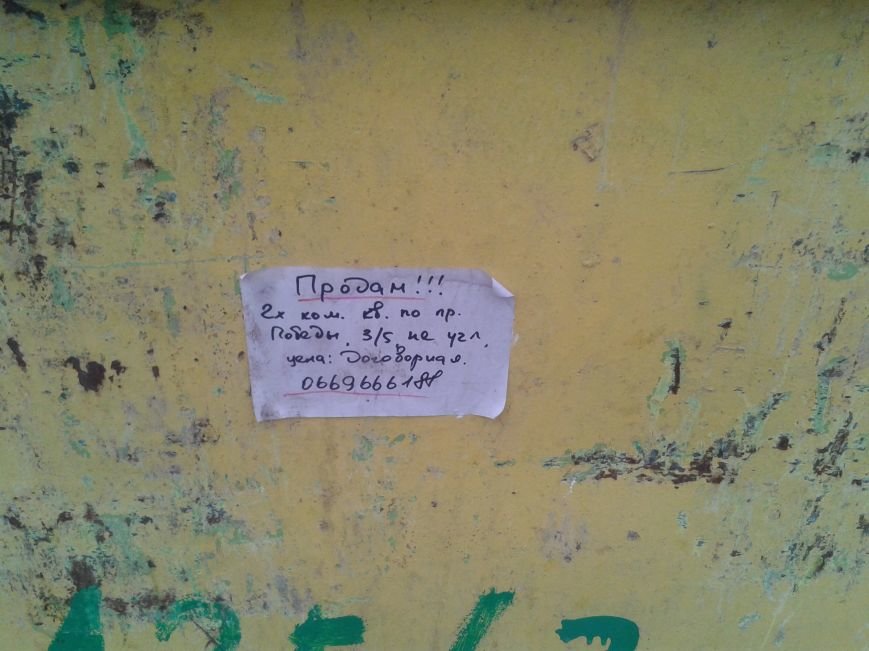 Продам!!!
2х ком. кв. по пр.
Победы, 3/5, не угл,
цена: Договорная.
0669666188